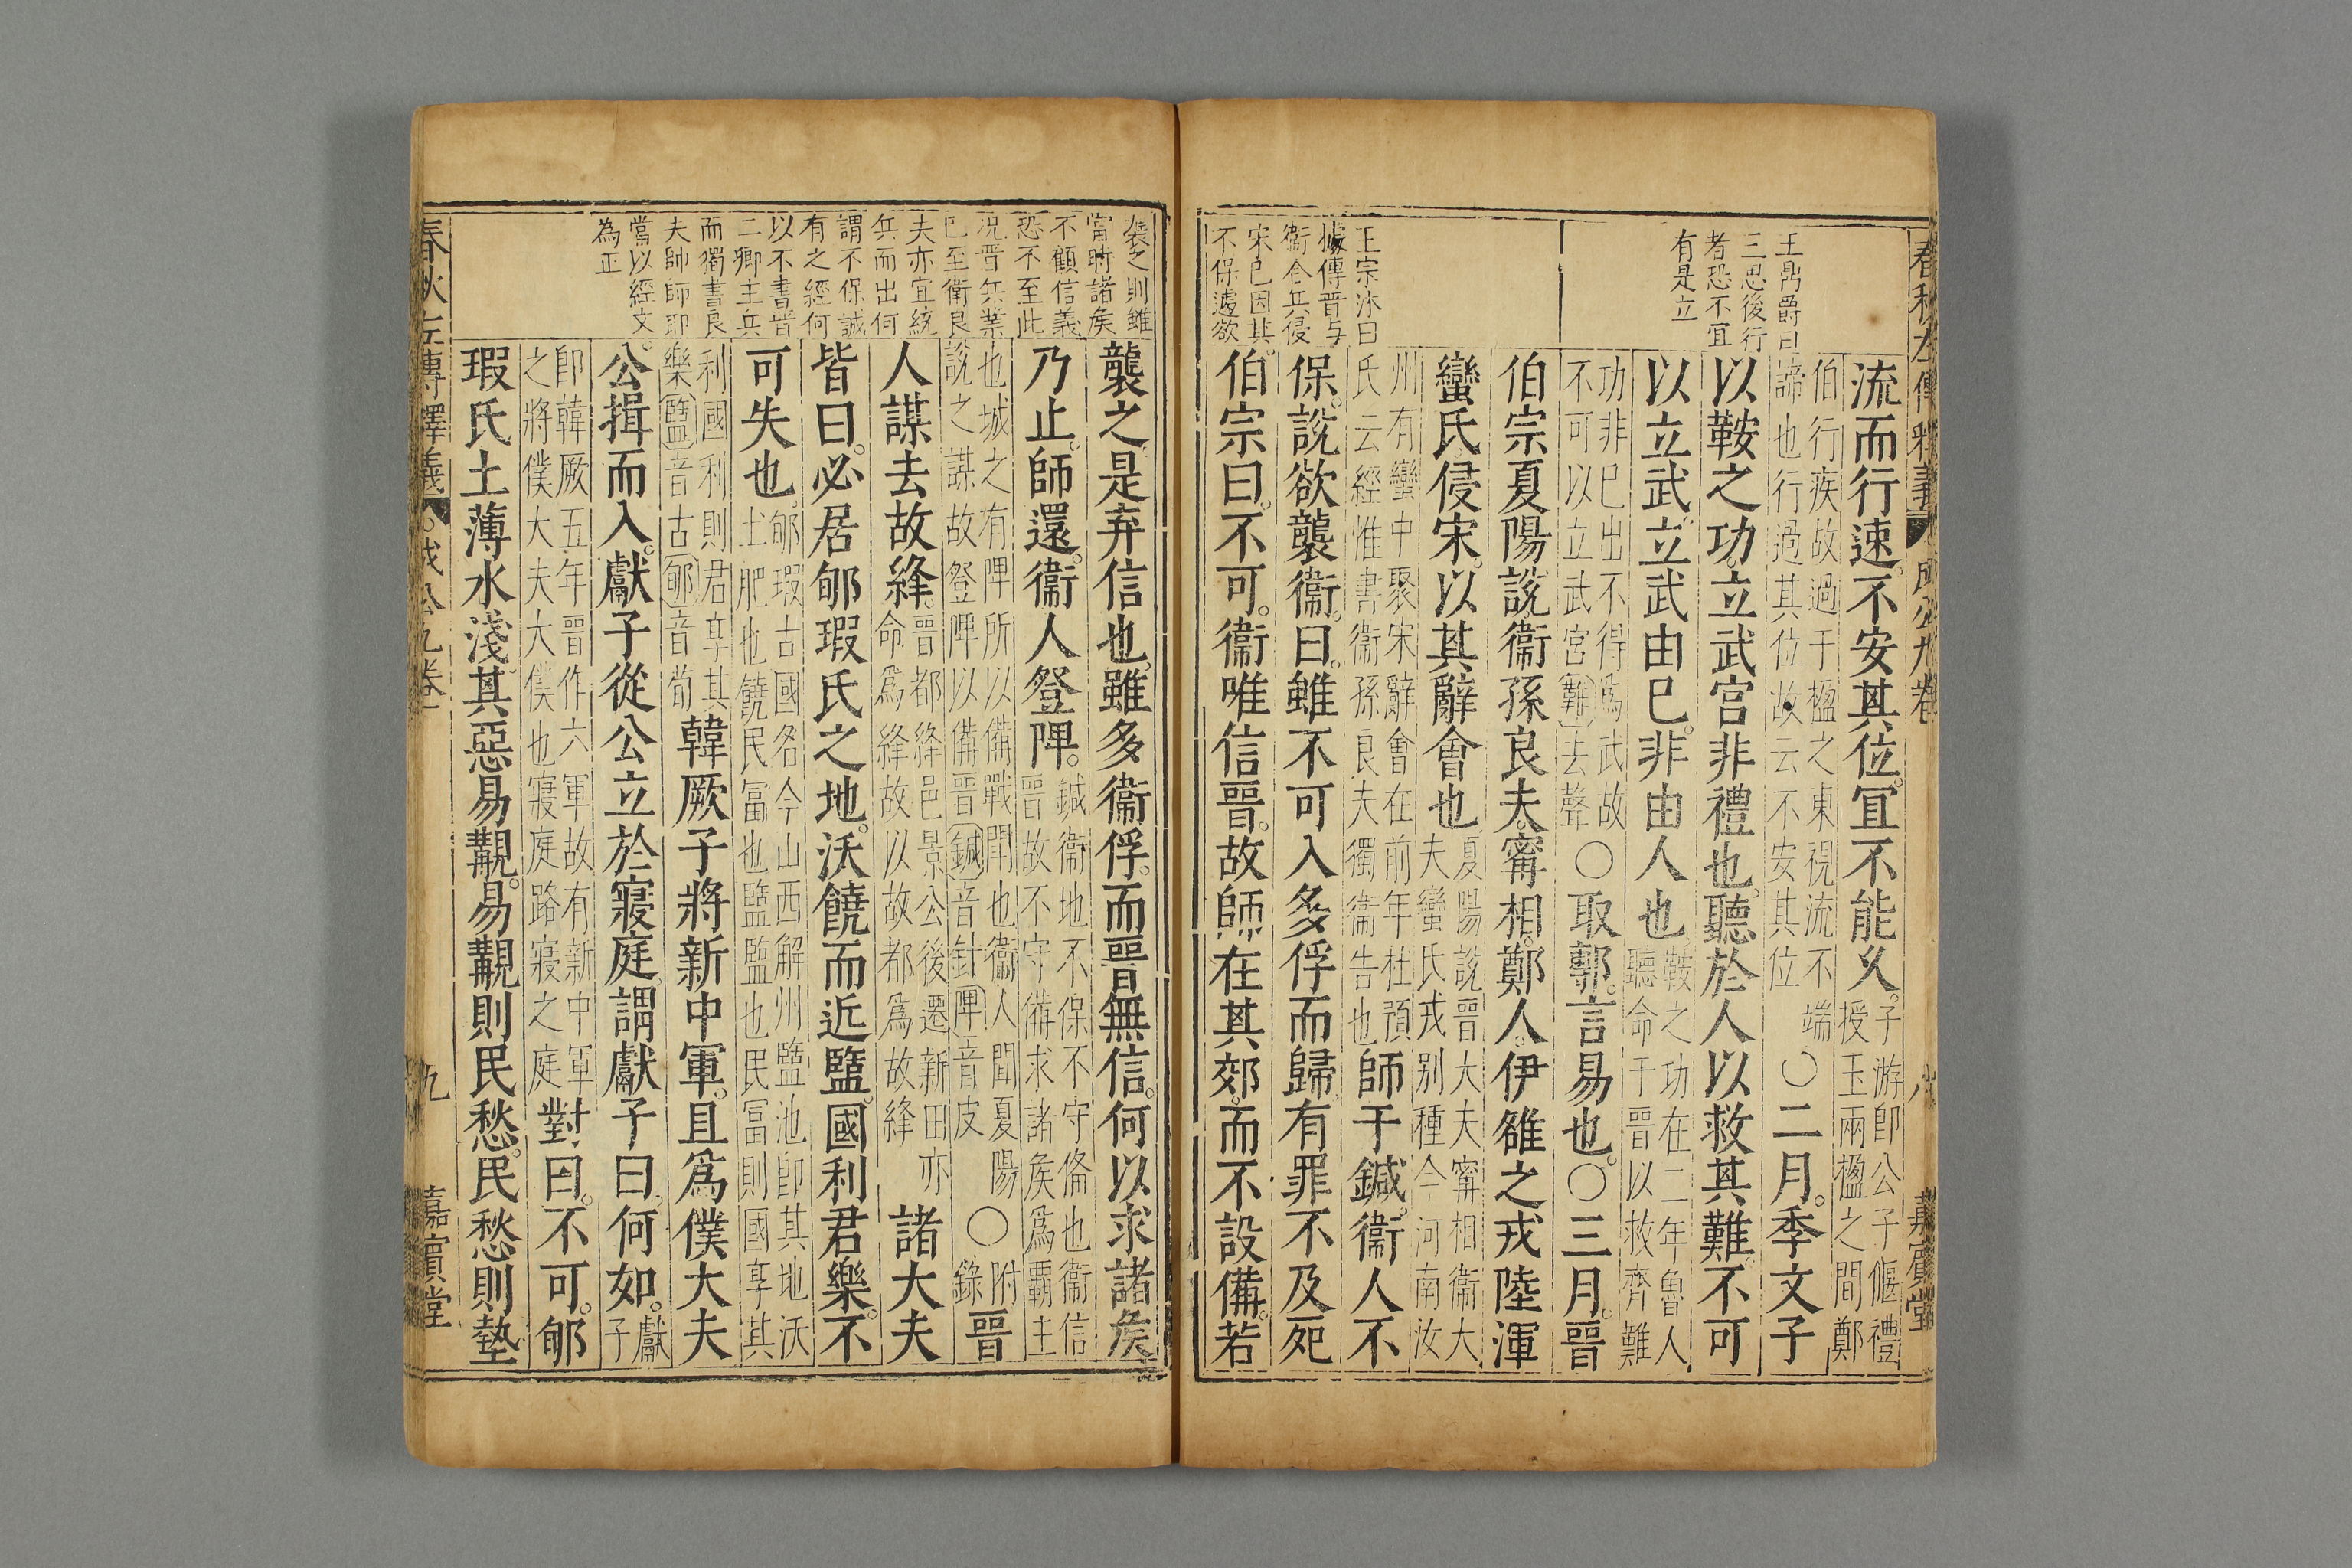 春秋左傳釋義 成公九卷 八 嘉賓堂
王鼎爵曰
三思後行
者恐不宜
有是立
王宗沐曰
據傳晉与
衞合兵侵
宋已因其
不保遽欲
流而行速不安其位宜不能久子游卽公子偃禮授玉兩楹之間鄭
伯行疾故過于楹之東視流不端諦也行過其位故云不安其位○二月季文子
以鞍之功立武宮非禮也聽於人以救其難不可
以立武立武由已非由人也鞍之功在二年魯人聽命于晉以救齊難
功非已出不得爲武故不可以立武宮難去聲○取鄟言易也○三月晉
伯宗夏陽說衞孫良夫甯相鄭人伊雒之戎陸渾
蠻氏侵宋以其辭會也夏陽說晉大夫甯相衞大夫蠻氏戎别種今河南汝
州有蠻中聚宋辭會在前年杜預氏云經惟書衞孫良夫獨衞告也師于鍼衞人不
保說欲襲衞曰雖不可入多俘而歸有罪不及死
伯宗曰不可衞唯信晉故師在其郊而不設備若
襲之則雖
當時諸矦
不顧信義
恐不至此
况晉兵業
已至衞良
夫亦宜統
兵而出何
謂不保誠
有之經何
以不書晉
二卿主兵
而獨書良
夫帥師耶
當以經文
為正
襲之是弃信也雖多衞俘而晉無信何以求諸矦
乃止師還衞人登陴鍼衞地不保不守俻也衞信晉故不守備求諸矦爲霸主
也城之有陴所以備戰閧也衞人聞夏陽說之謀故登陴以備晉鍼音針陴音皮○附錄晉
人謀去故絳晉都絳邑景公後遷新田亦命爲絳故以故都爲故絳諸大夫
皆曰必居郇瑕氏之地沃饒而近盬國利君樂不
可失也郇瑕古國名今山西解州盬池卽其地沃土肥也饒民富也盬盬也民富則國享其
利國利則君享其樂盬音古郇音荀韓厥子將新中軍且爲僕大夫
公揖而入獻子從公立於寢庭謂獻子曰何如獻子
卽韓厥五年晉作六軍故有新中軍之將僕大夫大僕也寢庭路寢之庭對曰不可郇
瑕氏土薄水淺其惡易覯易覯則民愁民愁則墊
春秋左傳釋義 成公九卷 九 嘉賓堂